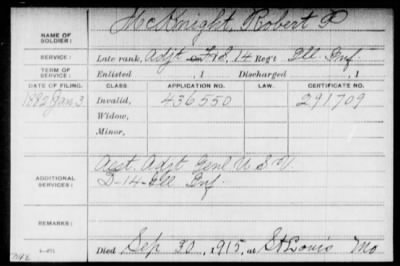 NAME OF SOLDIER: McKnight, Robert P
SERVICE: Late rank, Adjt F&S, 14 Reg't Ill Inf
TERM OF SERVICE: Enlisted , 1 Discharged , 1
DATE OF FILING. CLASS. APPLICATION NO. LAW. CERTIFICATE NO.
1882 Jan 3 Invalid, 436550 291709
Widow,
Minor,
ADDITIONAL SERVICES: Asst. Adjt Genl U S V
D-14-Ill Inf.
REMARKS:
Died Sep 30, 1915, at St Louis Mo